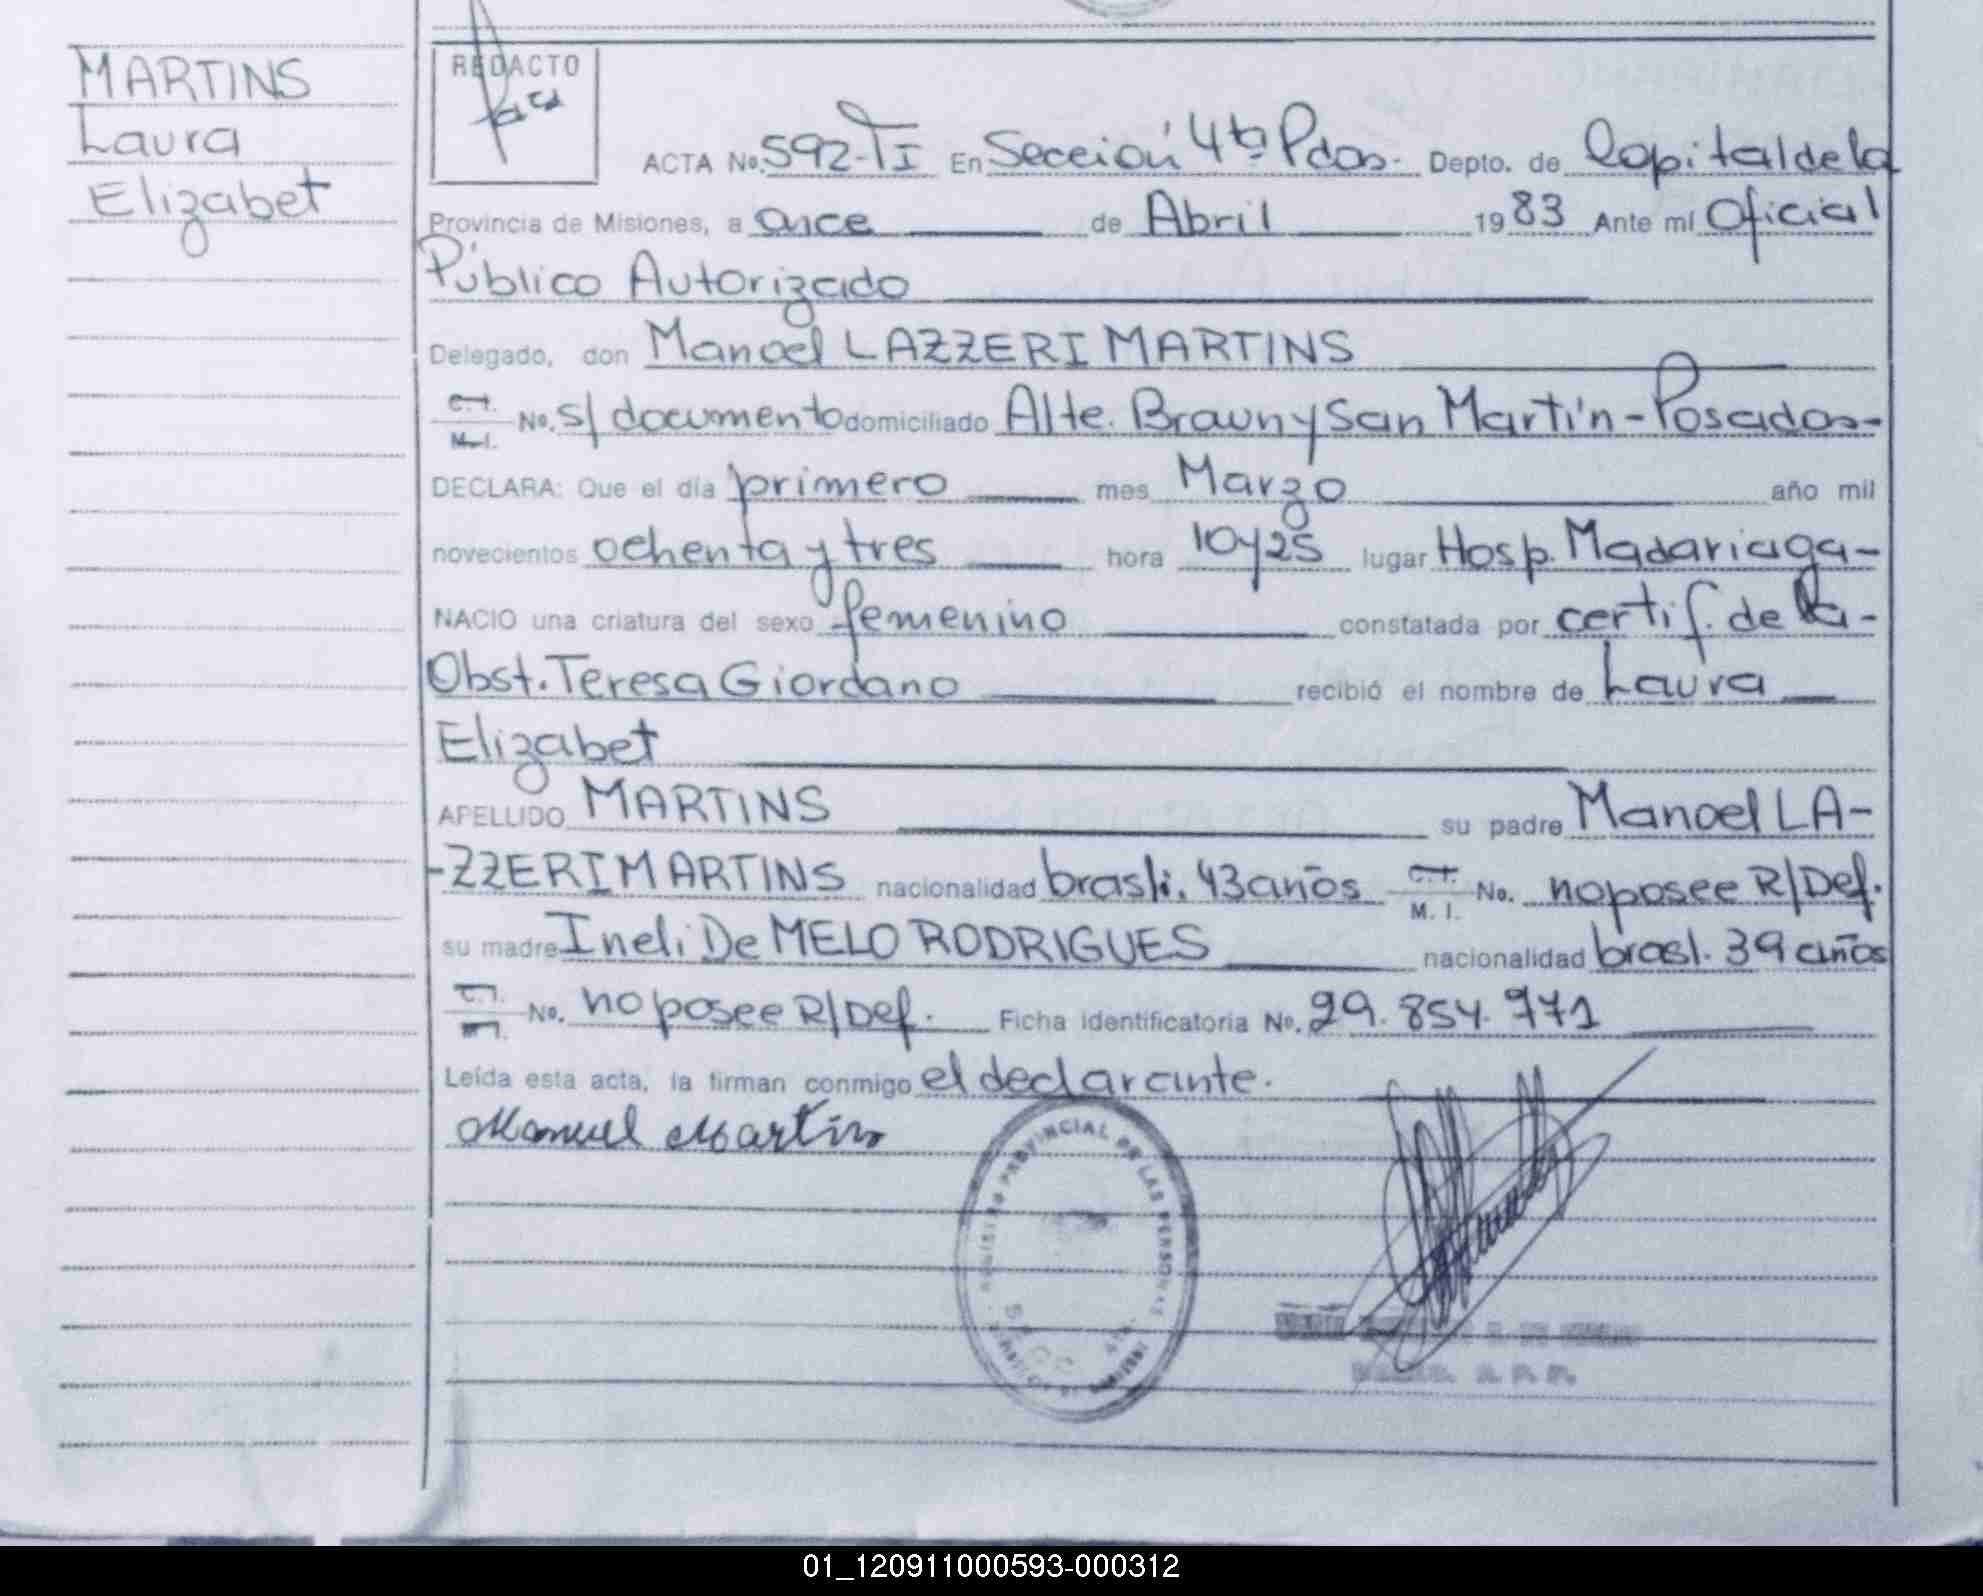 MARTINS
Laura
Elizabet
REDACTO
ACTA No. 592-TI En Sección 4ta Pdas. Depto. de Capital de la
Provincia de Misiones, a once de Abril 1983 Ante mí Oficial
Público Autorizado
Delegado, don Manoel LAZZERI MARTINS
C.I. M.I. No. s/documento domiciliado Alte. Brown y San Martín - Posadas-
DECLARA: Que el día primero mes Marzo año mil
novecientos ochenta y tres hora 10 y 25 lugar Hosp. Madariaga-
NACIO una criatura del sexo femenino constatada por certif. de la-
Obst. Teresa Giordano recibió el nombre de Laura
Elizabet
APELLIDO MARTINS su padre Manoel LA-
-ZZERI MARTINS nacionalidad brasli. 43 años C.I. M. I. No. no posee R/Def.
su madre Ineli De MELO RODRIGUES nacionalidad brasl. 39 años
C.I. No. no posee R/Def. Ficha identificatoria No. 29.854.771
Leída esta acta, la firman conmigo el declarante.
Manuel Martins
REGISTRO PROVINCIAL DE LAS PERSONAS
01_120911000593-000312